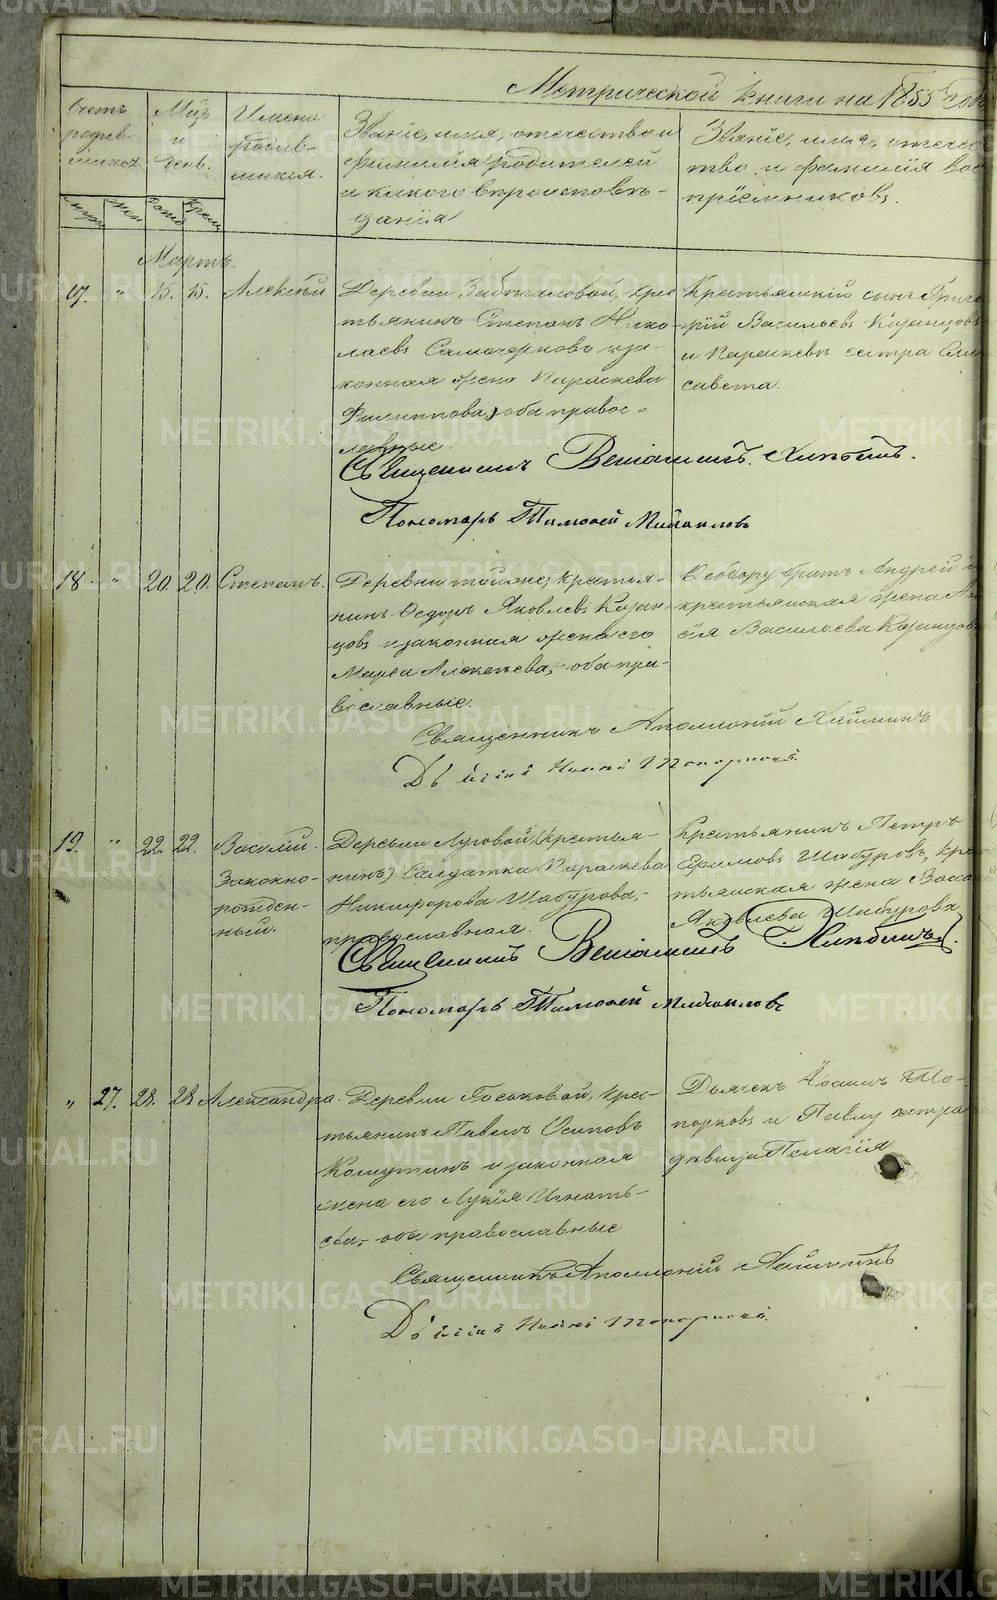 Метрической книги на 1855 годъ
Счетъ
родив-
шихся.
Мцъ
и
день.
Имена
родив-
шихся.
Званіе, имя, отечество и
фамилія родителей
и какого вѣроисповѣ-
данія
Званіе, имя, отечес
тво и фамилія вос
пріемниковъ.
Мартъ.
17. " 15. 15. Алексѣй
Деревни крес
тьянинъ Степанъ Нико-
лаевъ и за-
конная жена Параскева
Филиппова, оба правос-
лавные.
Крестьянскій сынъ Григо
рій Васильевъ Казанцовъ
и Параскевѣ сестра Ели
савета.
Священникъ Веніаминъ Хлѣбинъ.
Пономарь Тимофей Михаиловъ
18. " 20. 20. Степанъ.
Деревни тойже, крестья-
нинъ Ѳедоръ Яковлевъ Казан-
цовъ и законная жена его
Марѳа Алексѣева, оба пра-
вославные.
Ѳеодору братъ Андрей и
крестьянская жена
Васильева Казанцова
Священникъ Аполлоній
Іоаннъ Топорковъ
19. " 22. 22. Василій.
Законно-
рожден-
ный.
Деревни Луговой (крестья-
нинъ) Солдатка Параскева
Никифорова Шабурова,
православная.
Крестьянинъ Петръ
Ефимовъ Шабуровъ, кре
тьянская жена Васса
Яковлева Шабурова
Священникъ Веніаминъ Хлѣбинъ.
Пономарь Тимофей Михаиловъ
" 27. 28. 28 Александра.
Деревни крес-
тьянинъ Павелъ Осиповъ
Комутинъ и законная
жена его Лукія Игнать-
ева, оба православные
Дьячекъ Іоаннъ То-
порковъ и Павлу сестра
дѣвица Пелагія
Священникъ Аполлоній
Іоаннъ Топорковъ
METRIKI.GASO-URAL.RU